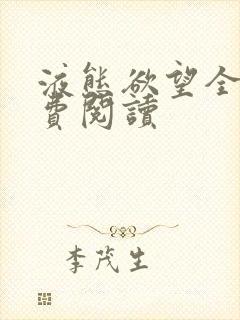 液態欲望全
費閱讀
李茂生